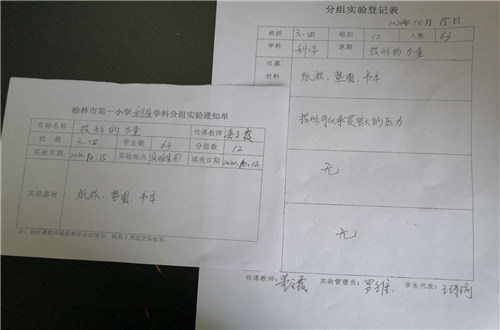 分组实验登记表
2020年10月15日
班级 六.四 组别 12 人数 63
学科 科学 课题 拱形的力量
仪器
材料
纸拱、垫圈、书本
拱形可以承受很大的压力
无
无
任课教师: 实验管理员: 学生代表:
榆林市第一小学科学学科分组实验通知单
实验名称 拱形的力量 任课教师
班级 六.四 学生数 63 分组数 12
实验日期 2020.10.15 实验地点 填表日期 2020.10.12
实验器材 纸拱、垫圈、书本